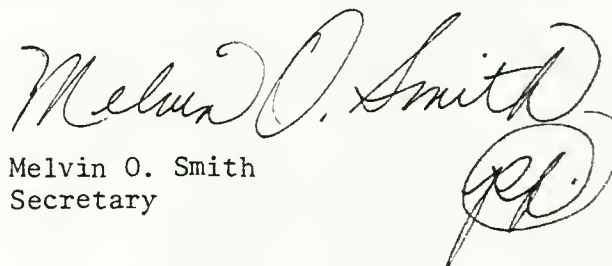 Melvin O. Smith
Melvin O. Smith
Secretary